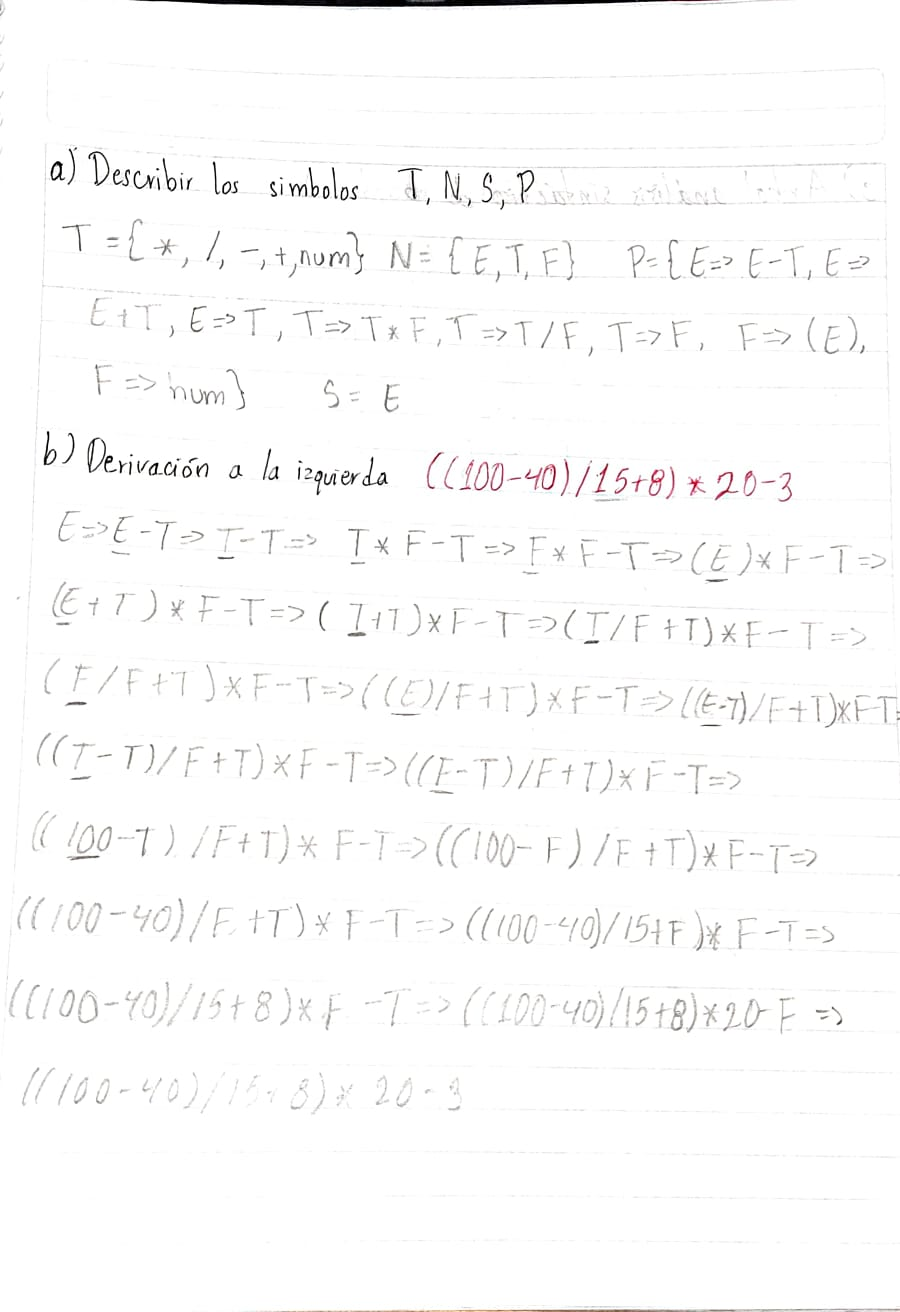 a) Describir los simbolos T, N, S, P
T = {*, /, -, +, num} N = {E, T, F} P = {E => E-T, E =>
E+T, E => T, T => T*F, T => T/F, T => F, F => (E),
F => num} S = E
b) Derivación a la izquierda ((100-40)/15+8) * 20-3
E=>E-T=> T-T=> T * F-T => F * F-T => (E)*F-T =>
(E+T) * F-T => (T+T)*F-T => (T/F+T)*F-T =>
(F/F+T)*F-T=>((E)/F+T)*F-T=>((E-T)/F+T)*F-T=
((T-T)/F+T)*F-T=>((F-T)/F+T)*F-T=>
((100-T)/F+T)* F-T=>((100-F)/F+T)*F-T=>
((100-40)/F+T)*F-T=>((100-40)/15+F)* F-T=>
((100-40)/15+8)*F-T=>((100-40)/15+8)*20-F =>
((100-40)/15+8)* 20-3